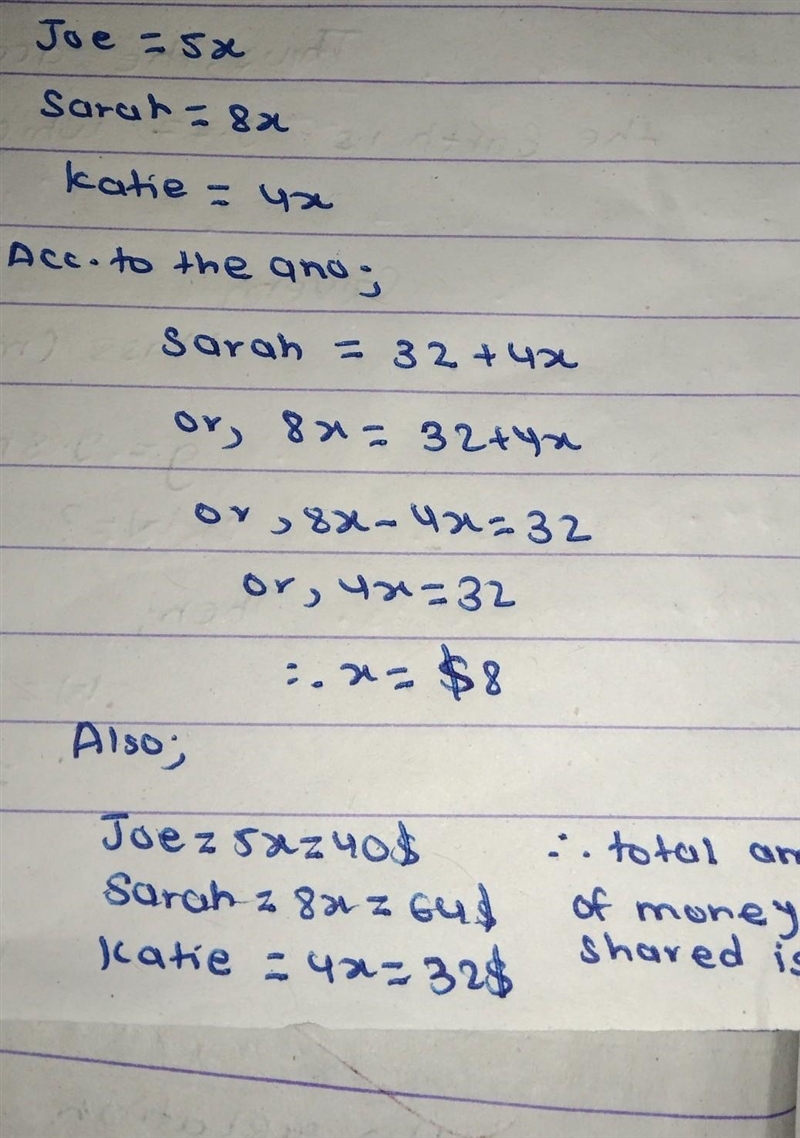 Joe = 5x
Sarah = 8x
Katie = 4x
Acc. to the qno;
Sarah = 32 + 4x
or, 8x = 32+4x
or, 8x - 4x = 32
or, 4x = 32
∴ x = $8
Also;
Joe = 5x = 40$
Sarah = 8x = 64$
Katie = 4x = 32$
∴ total am
of money
shared is